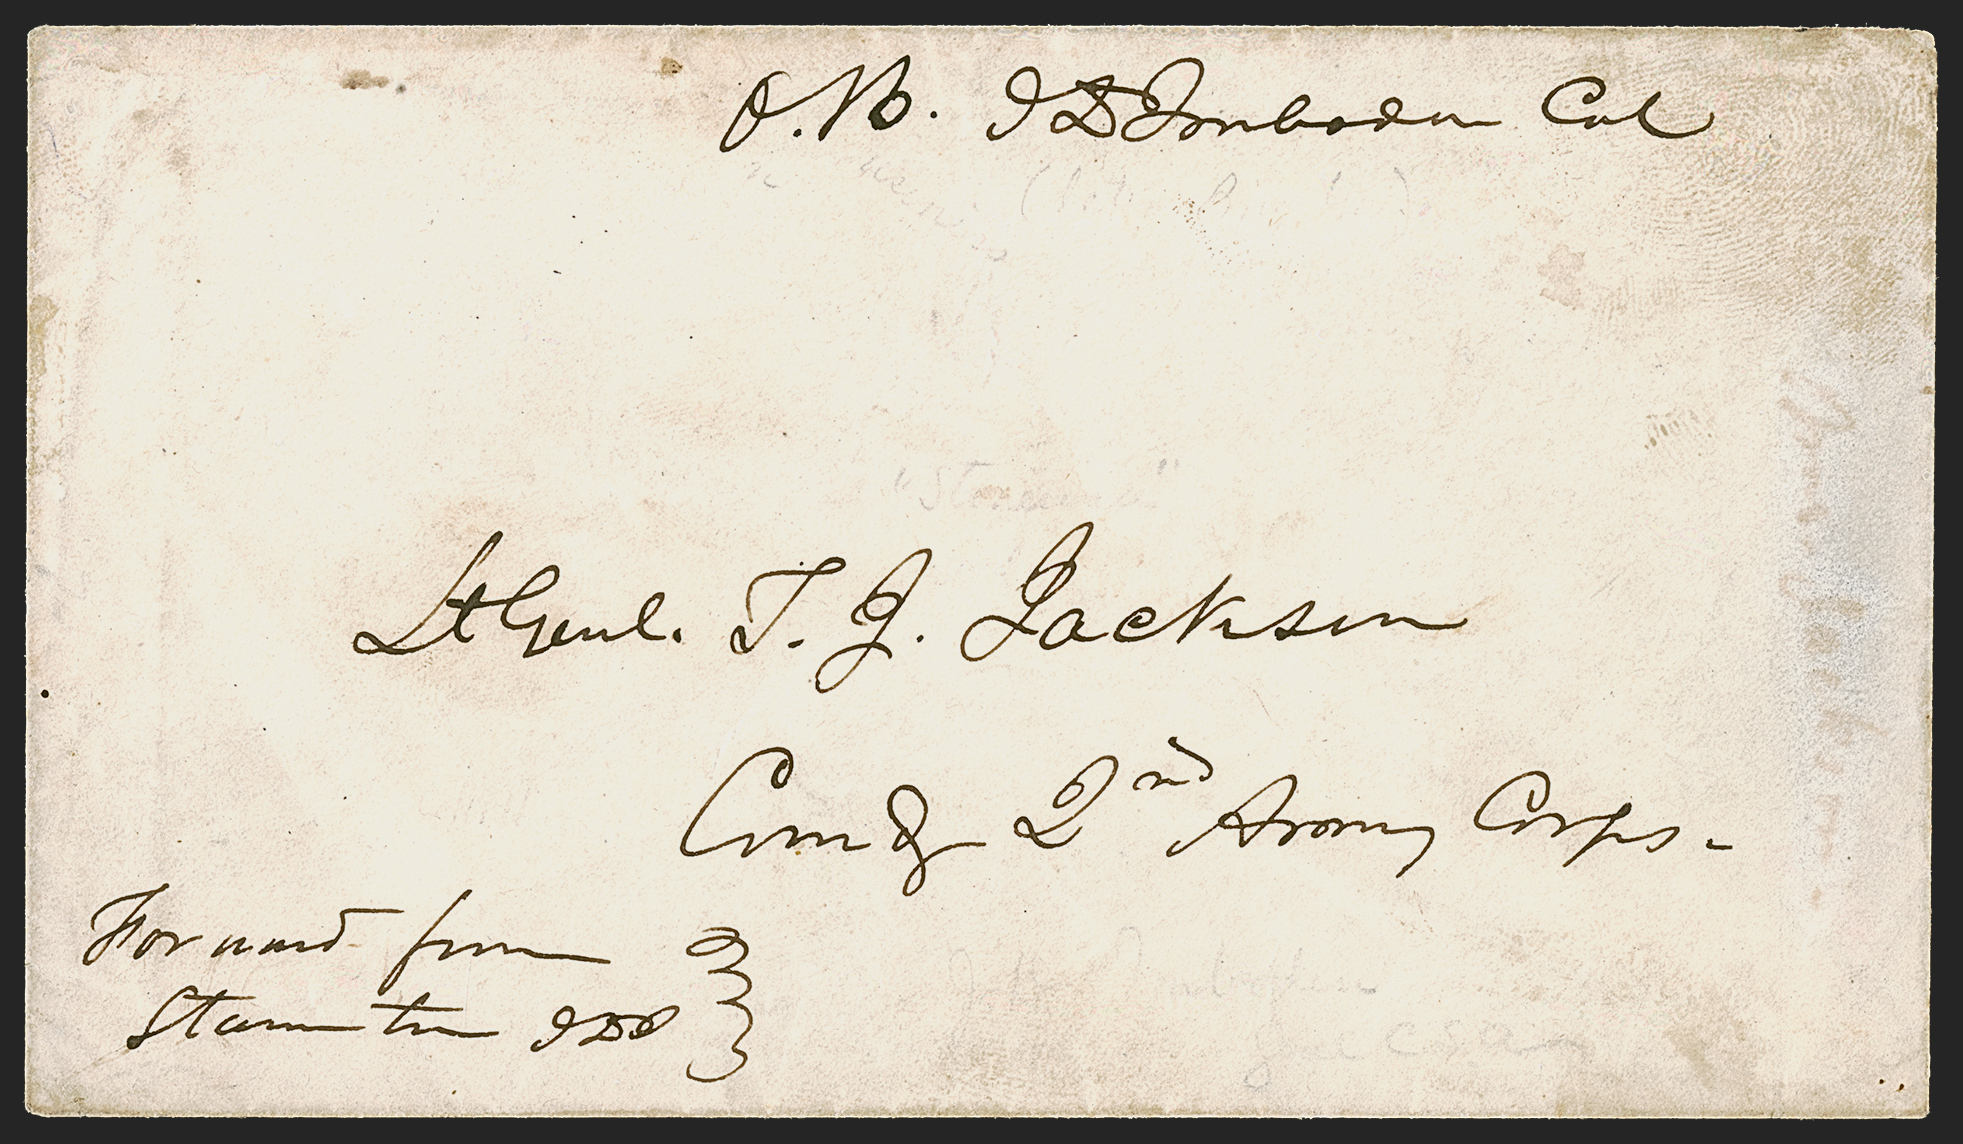 O.B. J D Imboden Col
"Stonewall"
Lt Genl. T. J. Jackson
Comdg 2nd Army Corps.
Forward from
Staunton JDI
CSA